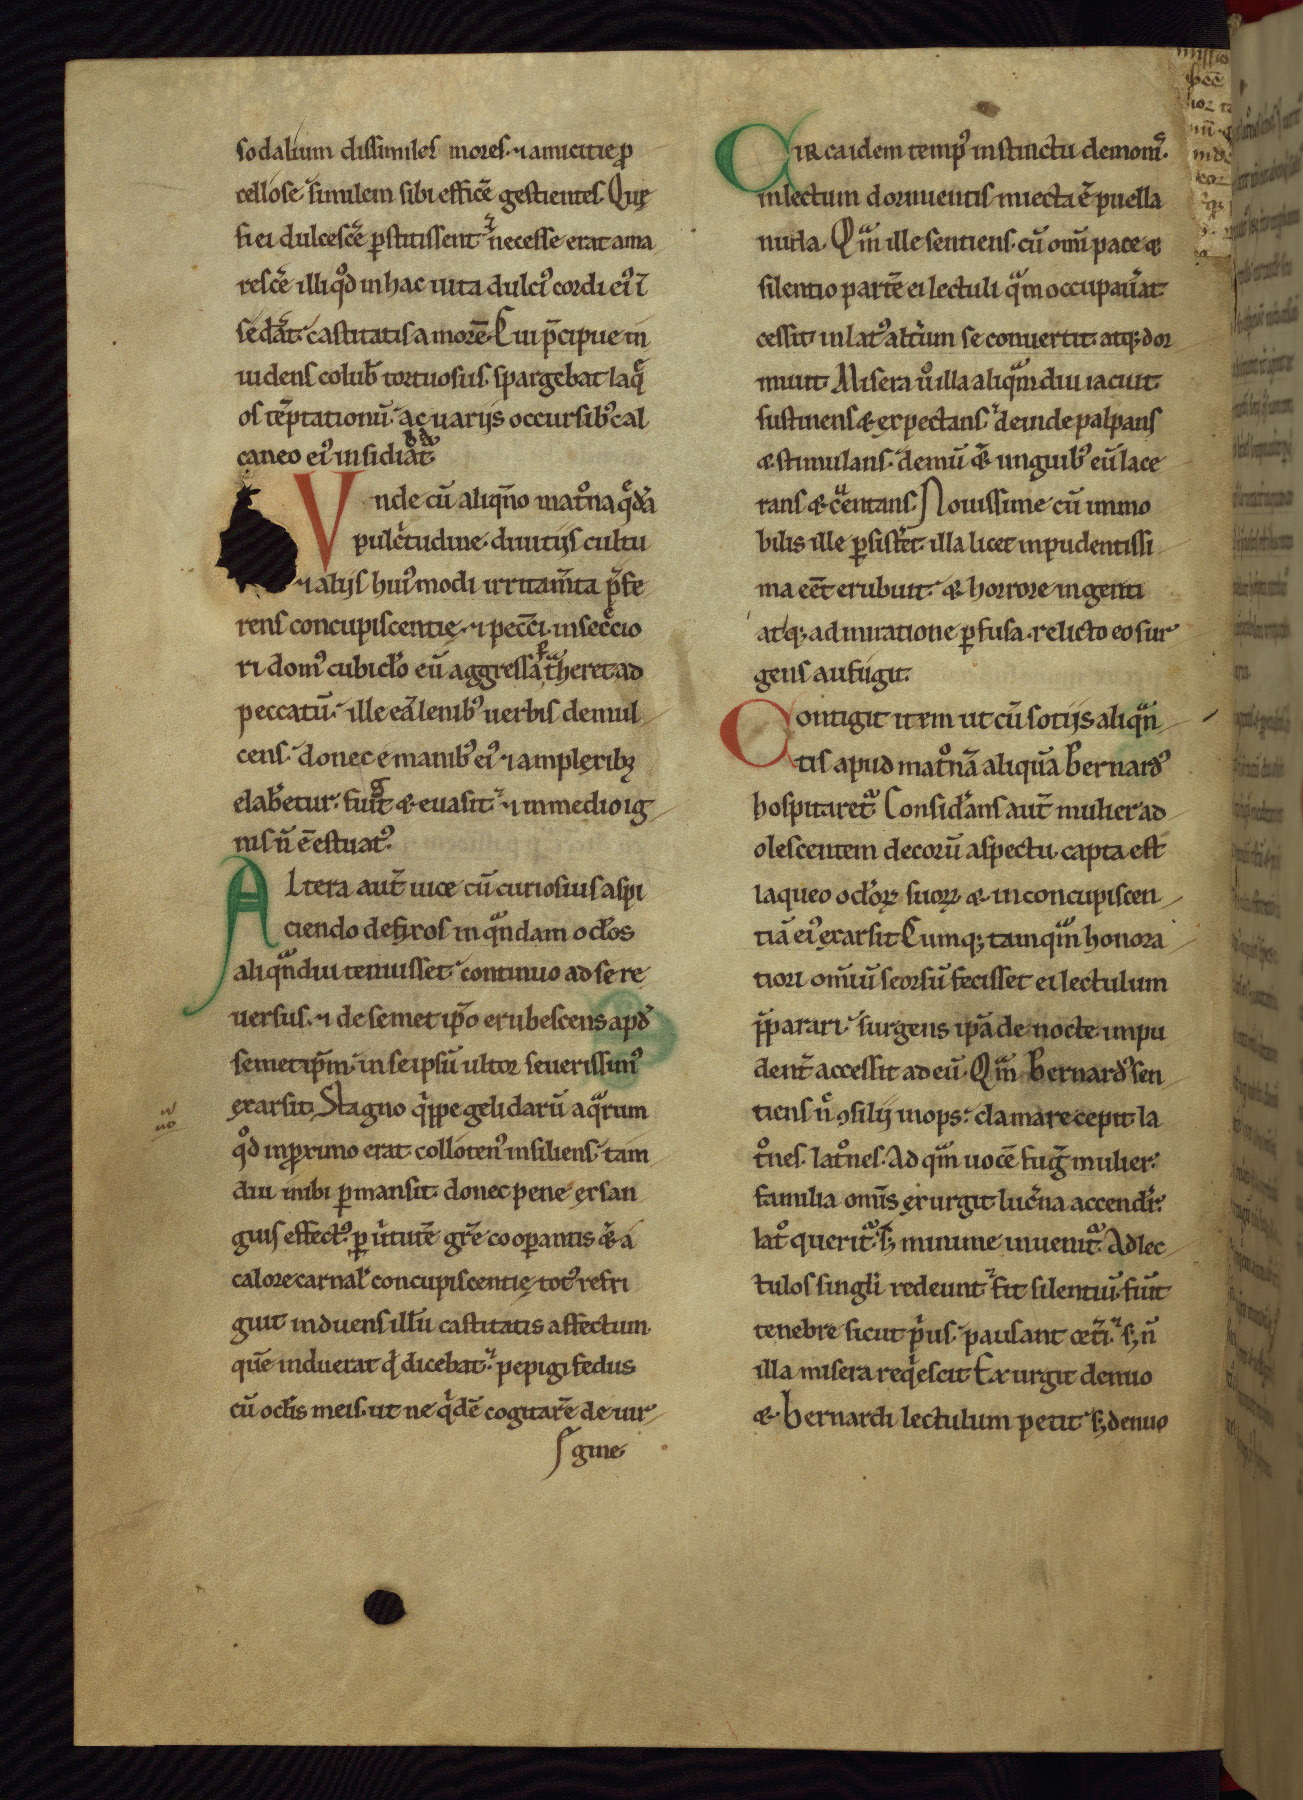 sodalium dissimiles mores. ⁊ amicitie ꝓ
cellose. similem sibi efficē gestientes. Quę
si ei dulcescē ꝑstitissent necesse erat ama
rescē illi qd̾ in hac uita dulciꝰ cordi eiꝰ ī
sedāt. castitatis amorē. Cui p̄cipue in
uidens colub̄ tortuosus. spargebat laq̊
os tēptationū. ac uarijs occursibꝰ cal
caneo eiꝰ insidiāt
Vnde cū aliqn̄o mat̊na q̊dā
pulc̊tudine. diuitijs cultu
⁊ alijs huiꝰmodi irritam̄ta p̄fe
rens concupiscentię. ⁊ pecc̄i. in sec̊cio
ri domꝰ cubiclo eū aggressa t̄heret. ad
peccatū. ille eā lenibꝰ uerbis demul
cens. donec e manibꝰ eiꝰ ⁊ amplexibꝫ
elab̄etur. fuit & euasit. ⁊ in medio ig
nis n̄ ē estuatꝰ.
Altera aut̄ uice cū curiosius aspi
ciendo defixos in quandam oc̄los
aliquandiu tenuisset. continuo ad se re
uersus. ⁊ de semet ip̄o erubescens apd̄
semetip̄m. in seipsū ultor seuerissimꝰ
exarsit. Stagno q̊ppe gelidarū aquarum
qd̾ in ꝓximo erat collotenꝰ insiliens. tam
diu inibi ꝑmansit. donec pene exsan
guis effectꝰ. ꝑ uirtutē gr̄e cooꝑantis & a
calore carnal̄ concupiscentię totꝰ refri
guit induens illū castitatis affectum.
quē induerat q̊ dicebat. pepigi fedus
cū oc̄lis meis. ut ne q̊dē cogitarē de uir
gine.
Circa idem tempꝰ instinctu demonū.
in lectum dormientis iniecta ē puella
nuda. Quam ille sentiens. cū omi pace &
silentio partē ei lectuli quam occupauāt
cessit. in latꝰ altum se conuertit. atqꝫ dor
muit. Misera ů illa aliquamdiu iacuit
sustinens & expectans. deinde palpans
& stimulans. demū & unguibꝰ eū lace
rans & cruentans. Nouissime cū immo
bilis ille ꝑsisteret. illa licet inpudentissi
ma eēt erubuit. & horrore ingenti
atqꝫ admiratione ꝑfusa. relicto eo sur
gens aufugit.
Contigit item ut cū sotijs aliquan
tis apud mat̊nā aliquā Bernardꝰ
hospitaret̄. Considāns aut̄ mulier ad
olescentem decorū aspectu. capta est
laqueo oc̄loꝝ suoꝝ. & in concupiscen
tiā eiꝰ exarsit. Cumqꝫ tamquam honora
tiori omiū seorsū fecisset ei lectulum
p̄parari. surgens ipā de nocte impu
dent̄ accessit ad eū. Quam Bernardꝰ sen
tiens n̄ ꝯsilij inops. clamare cepit. la
t̊nes. lat̊nes. Ad quam uocē fug̊ mulier.
familia omis exurgit. lucn̄a accendit̄.
lat̊ querit̄. sꝫ minime inuenit̄. Ad lec
tulos singli̊ redeunt. fit silentiū. fiūt
tenebre sicut p̊us. pausant cet̄i. sꝫ n̄
illa misera req̊escit. Exurgit denuo
& Bernardi lectulum petit. sꝫ denuo